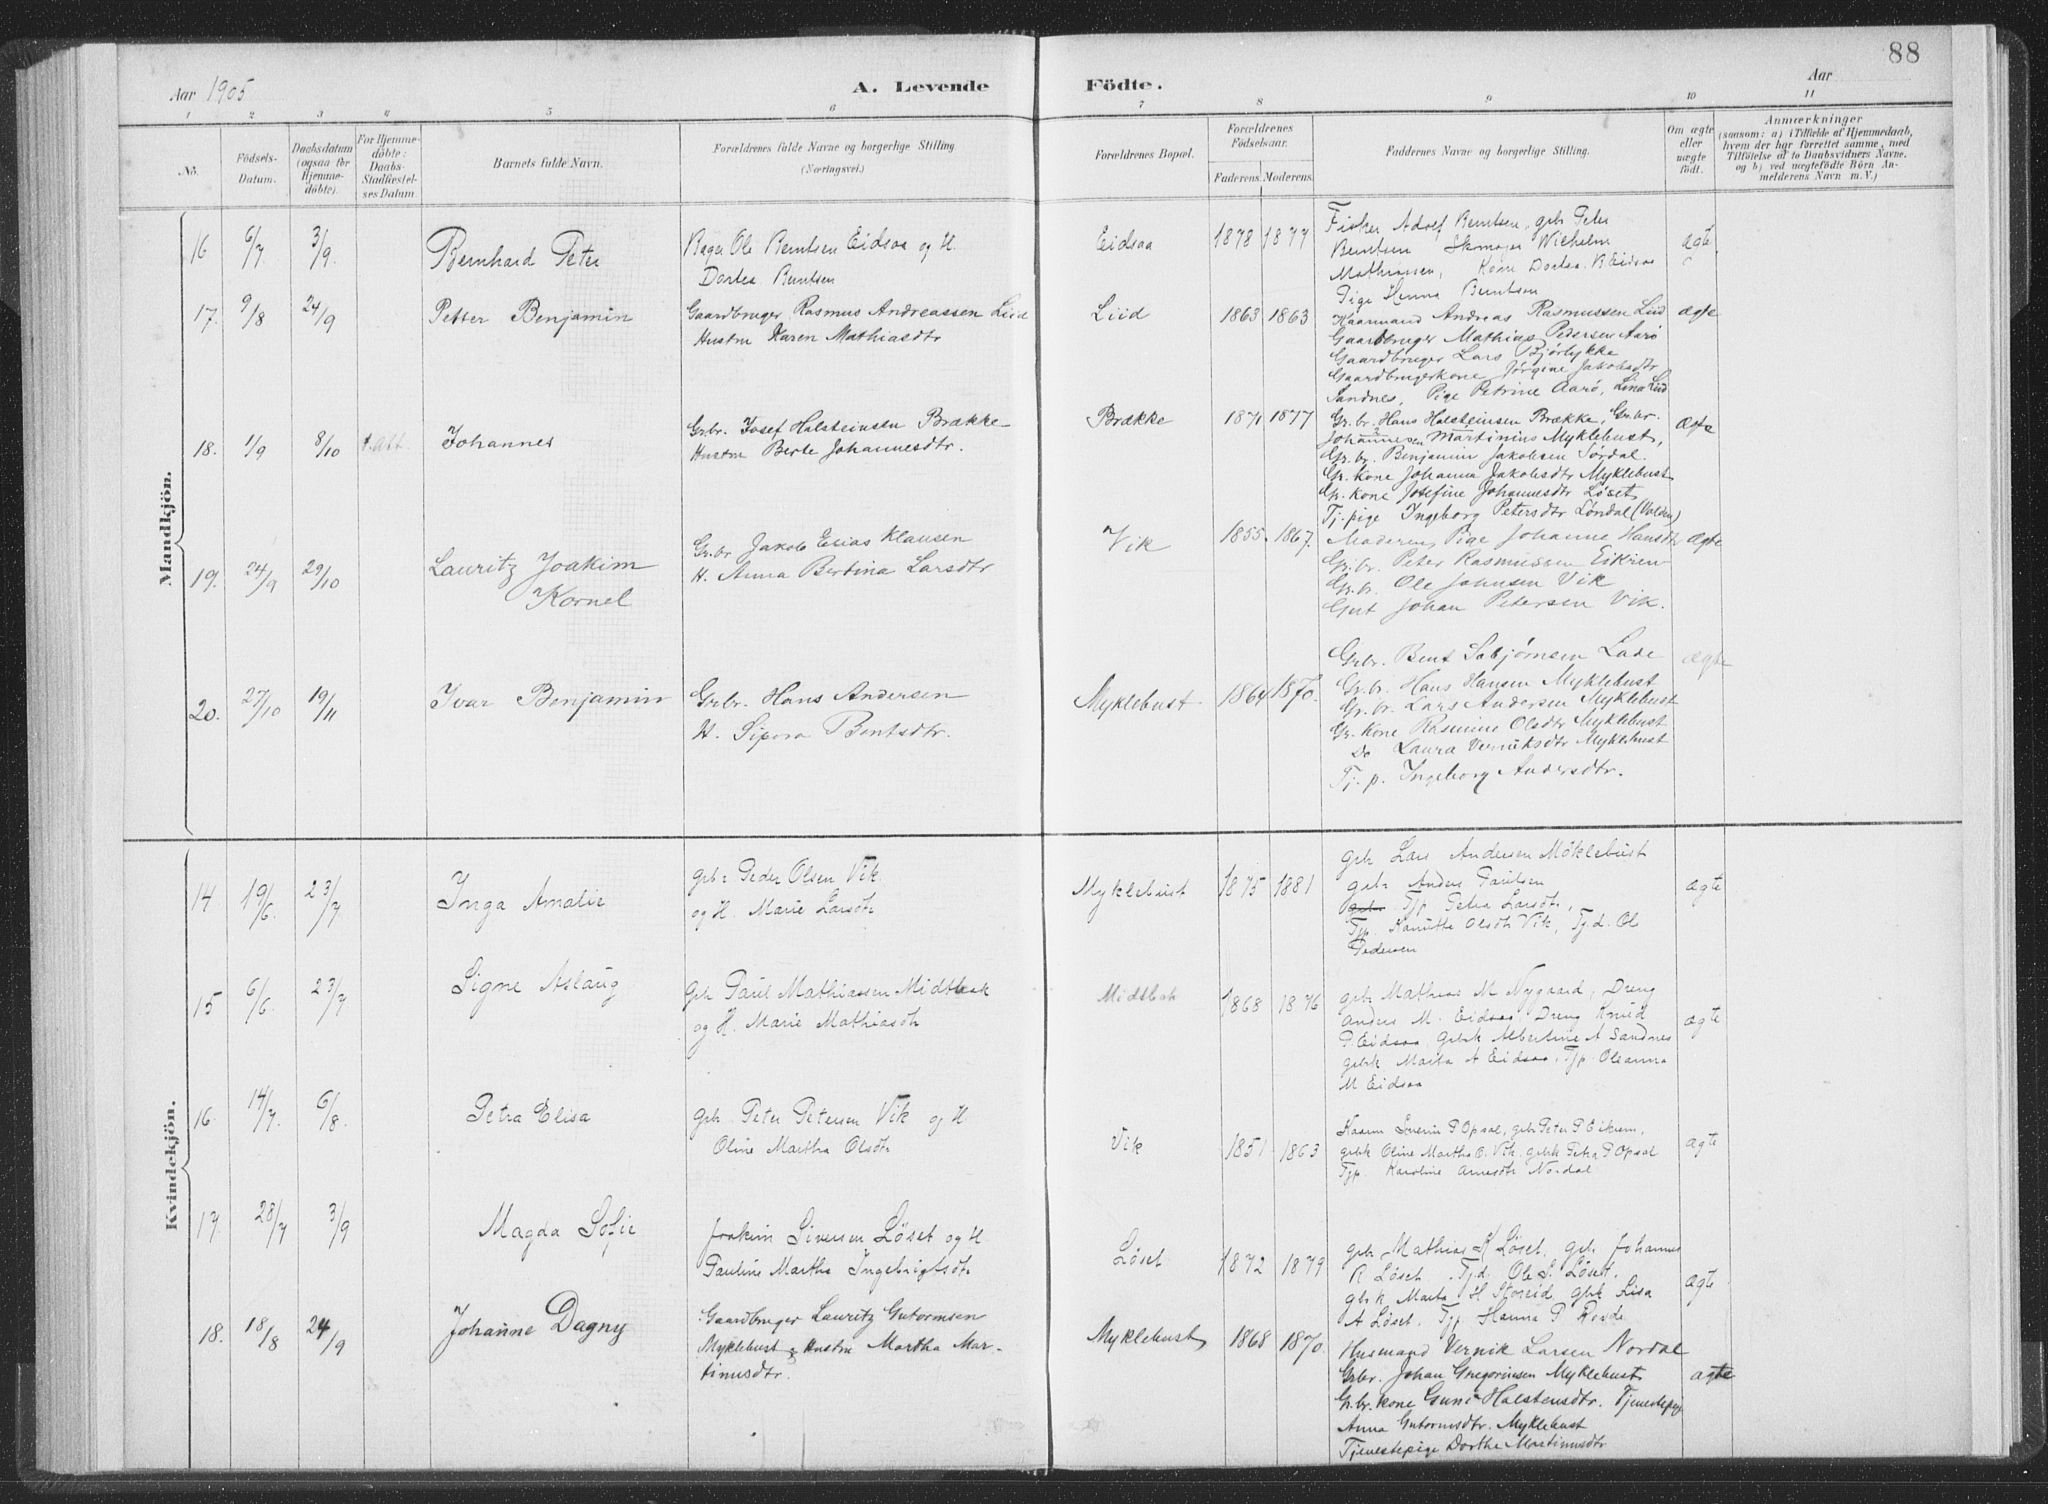 88
Aar 1905
A. Levende Födte.
Aar
1 2 3 4 5 6 7 8 9 10 11
No.
Födsels-Datum.
Daabsdatum (ogsaa for Hjemme-döbte).
For Hjemme-döbte: Daabs-Stadfæstel-ses Datum.
Barnets fulde Navn.
Forældrenes fulde Navne og borgerlige Stilling.
(Næringsvei.)
Forældrenes Bopæl.
Forældrenes Födselsaar.
Faderens. Moderens.
Faddernes Navne og borgerlige Stilling.
Om ægte eller uægte födt.
Anmærkninger
(saasom: a) i Tilfælde af Hjemmedaab, hvem der har forrettet samme, med Tilföielse af to Daabsvidners Navne, og b) ved uægtefödte Börn An-melderens Navn m. V.)
Mandkjön.
16 6/7 3/9. Bernhard Peter
Bager Ole Berntsen Eidsaa og H.
Dortea Berntsen
Eidsaa 1878 1877
Fisker Adolf Berntsen, gbr Peter
Berntsen Skomager Wilhelm
Mathiassen, Kone Dortea B Eidsaa
Pige Hanna Berntsen
ægte
17. 9/8 24/9 Petter Benjamin
Gaardbruger Rasmus Andreassen Liid
Hustru Karen Mathiasdtr
Liid 1863 1863
Kaarmand Andreas Rasmussen Liid
Gaardbruger Mathias Pedersen Aarø
Gaardbruger Lars Bjørlykke
Gaardbrugerkone Jørgine Jakobsdtr
Sandnes, Pige Petrine Aarø, Lina Liid
ægte
18. 1/9 8/10 Johannes
Grbr. Josef Halsteinsen Brække
Hustru Berte Johannesdtr.
Brække 1871 1877
Gr. br. Hans Halsteinsen Brække, Gr. br.
Johannesen Martinius Myklebust,
Gr. br. Benjamin Jakobsen Sørdal.
Gr. kone Johanna Jakobsdtr Myklebust
Gr. kone Josefine Johannesdtr Løset,
Tj. pige Ingeborg Petersdtr Løndal (Volden)
ægte
19. 24/9 29/10 Lauritz Joakim
Kornel
Gr. br Jakob Elias Klausen
H. Anna Bertina Larsdtr
Vik 1855. 1867.
Moderen, Pige Johanne Hansdtr
Gr. br. Peter Rasmussen Eikrem
Gr. br. Ole Johnsen Vik
Gut Johan Petersen Vik.
ægte
20. 27/10 19/11 Ivar Benjamin
Grbr. Hans Andersen
H. Sipora Bentsdtr.
Myklebust 1864 1870.
Grbr. Bent Asbjørnsen Lade
Gr. br. Hans Hansen Myklebust
Gr. br. Lars Andersen Myklebust
Gr. Kone Rasmine Olsdtr Myklebust
Do Laura Verniksdtr Myklebust
Tj. p. Ingeborg Andersdtr.
ægte
Kvindekjön.
14 19/6. 23/7 Inga Amalie
gbr Peder Olsen Vik
og H. Marie Larsdtr
Myklebust 1875 1881
gbr Lars Andersen Møklebust
gbr Anders Paulsen
Tjp Petra Larsdtr,
Tjp. Kanutte Olsdtr Vik, Tj.d. Ol
Pedersen
ægte
15 6/6. 23/7 Signe Aslaug
gbr Paul Mathiassen Midtbak
og H. Marie Mathiasdtr
Midtbak 1868 1876
gbr Mathias M Nygaard, Dreng
Anders M. Eidsaa, Dreng Knud
P. Eidsaa, gbrk Albertine A Sandnes
gbrk Marta A Eidsaa, Tjp Oleanna
M Eidsaa
ægte
16. 14/7. 6/8. Petra Elisa
gbr Peter Petersen Vik og H
Oline Martha Olsdtr
Vik 1851 1863
Severin P Opsal, gbr Peter P Eikrem,
gbrk Oline Martha O. Vik, gbrk Petra P Opsal
Tjp. Karoline Arnesdtr Nordal
ægte
17. 28/7 3/9 Magda Sofie
Joakim Siversen Løset og H
Pauline Martha Ingebrigtsdtr
Løset 1872 1879
gbr Mathias K Løset, gbr Johannes
R Løset. Tjd. Ole S. Løset,
gbrk Marta H Storeid gbrk Lisa
A Løset. Tjp Hanna P Rovde
ægte
18. 18/8 24/9 Johanne Dagny
Gaardbruger Lauritz Gutormsen
Myklebust & Hustru Martha Mar-
tinusdtr.
Myklebust 1868 1870.
Husmand Vernik Larsen Nordal
Grbr. Johan Gregoriusen Myklebust
Gr. br. kone Guna Halstensdtr. Tjenestepig
Anna Gutormsdtr. Myklebust
Tjenestepige Dorthe Martinusdtr
ægte